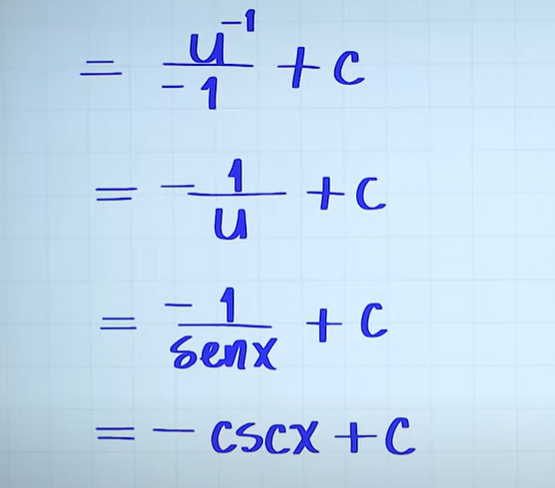 = u⁻¹/-1 + c
= -1/u + c
= -1/senx + c
= - cscx + c